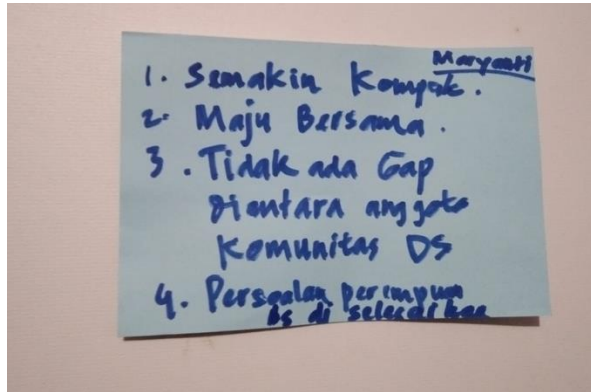 Maryanti
1. Semakin Kompak.
2. Maju Bersama.
3. Tidak ada Gap
diantara anggota
Komunitas DS
4. Persoalan perempuan
bs di selesaikan